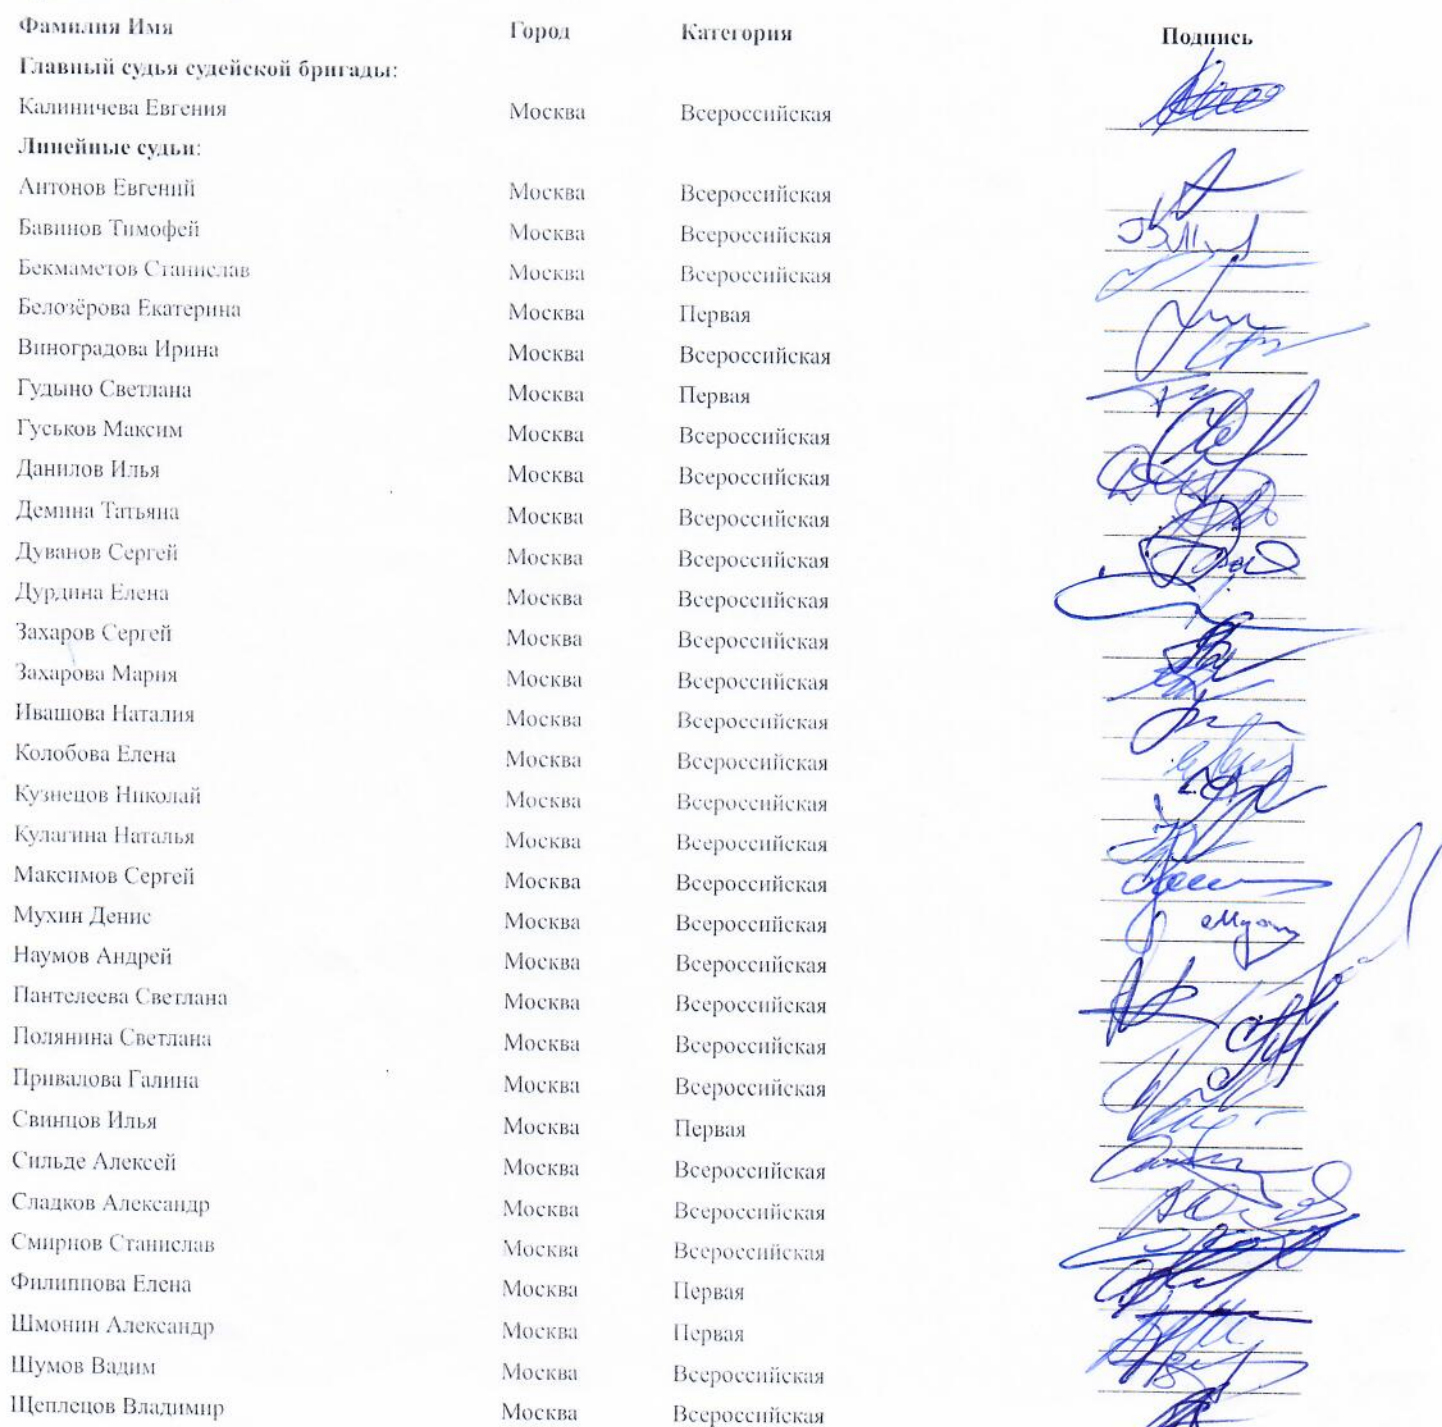 Фамилия Имя Город Категория Подпись
Главный судья судейской бригады:
Калиничева Евгения Москва Всероссийская
Линейные судьи:
Антонов Евгений Москва Всероссийская
Бавинов Тимофей Москва Всероссийская
Бекмаметов Станислав Москва Всероссийская
Белозёрова Екатерина Москва Первая
Виноградова Ирина Москва Всероссийская
Гудыно Светлана Москва Первая
Гуськов Максим Москва Всероссийская
Данилов Илья Москва Всероссийская
Демина Татьяна Москва Всероссийская
Дуванов Сергей Москва Всероссийская
Дурдина Елена Москва Всероссийская
Захаров Сергей Москва Всероссийская
Захарова Мария Москва Всероссийская
Ивашова Наталия Москва Всероссийская
Колобова Елена Москва Всероссийская
Кузнецов Николай Москва Всероссийская
Кулагина Наталья Москва Всероссийская
Максимов Сергей Москва Всероссийская
Мухин Денис Москва Всероссийская
Наумов Андрей Москва Всероссийская
Пантелеева Светлана Москва Всероссийская
Полянина Светлана Москва Всероссийская
Привалова Галина Москва Всероссийская
Свинцов Илья Москва Первая
Сильде Алексей Москва Всероссийская
Сладков Александр Москва Всероссийская
Смирнов Станислав Москва Всероссийская
Филиппова Елена Москва Первая
Шмонин Александр Москва Первая
Шумов Вадим Москва Всероссийская
Щеплецов Владимир Москва Всероссийская